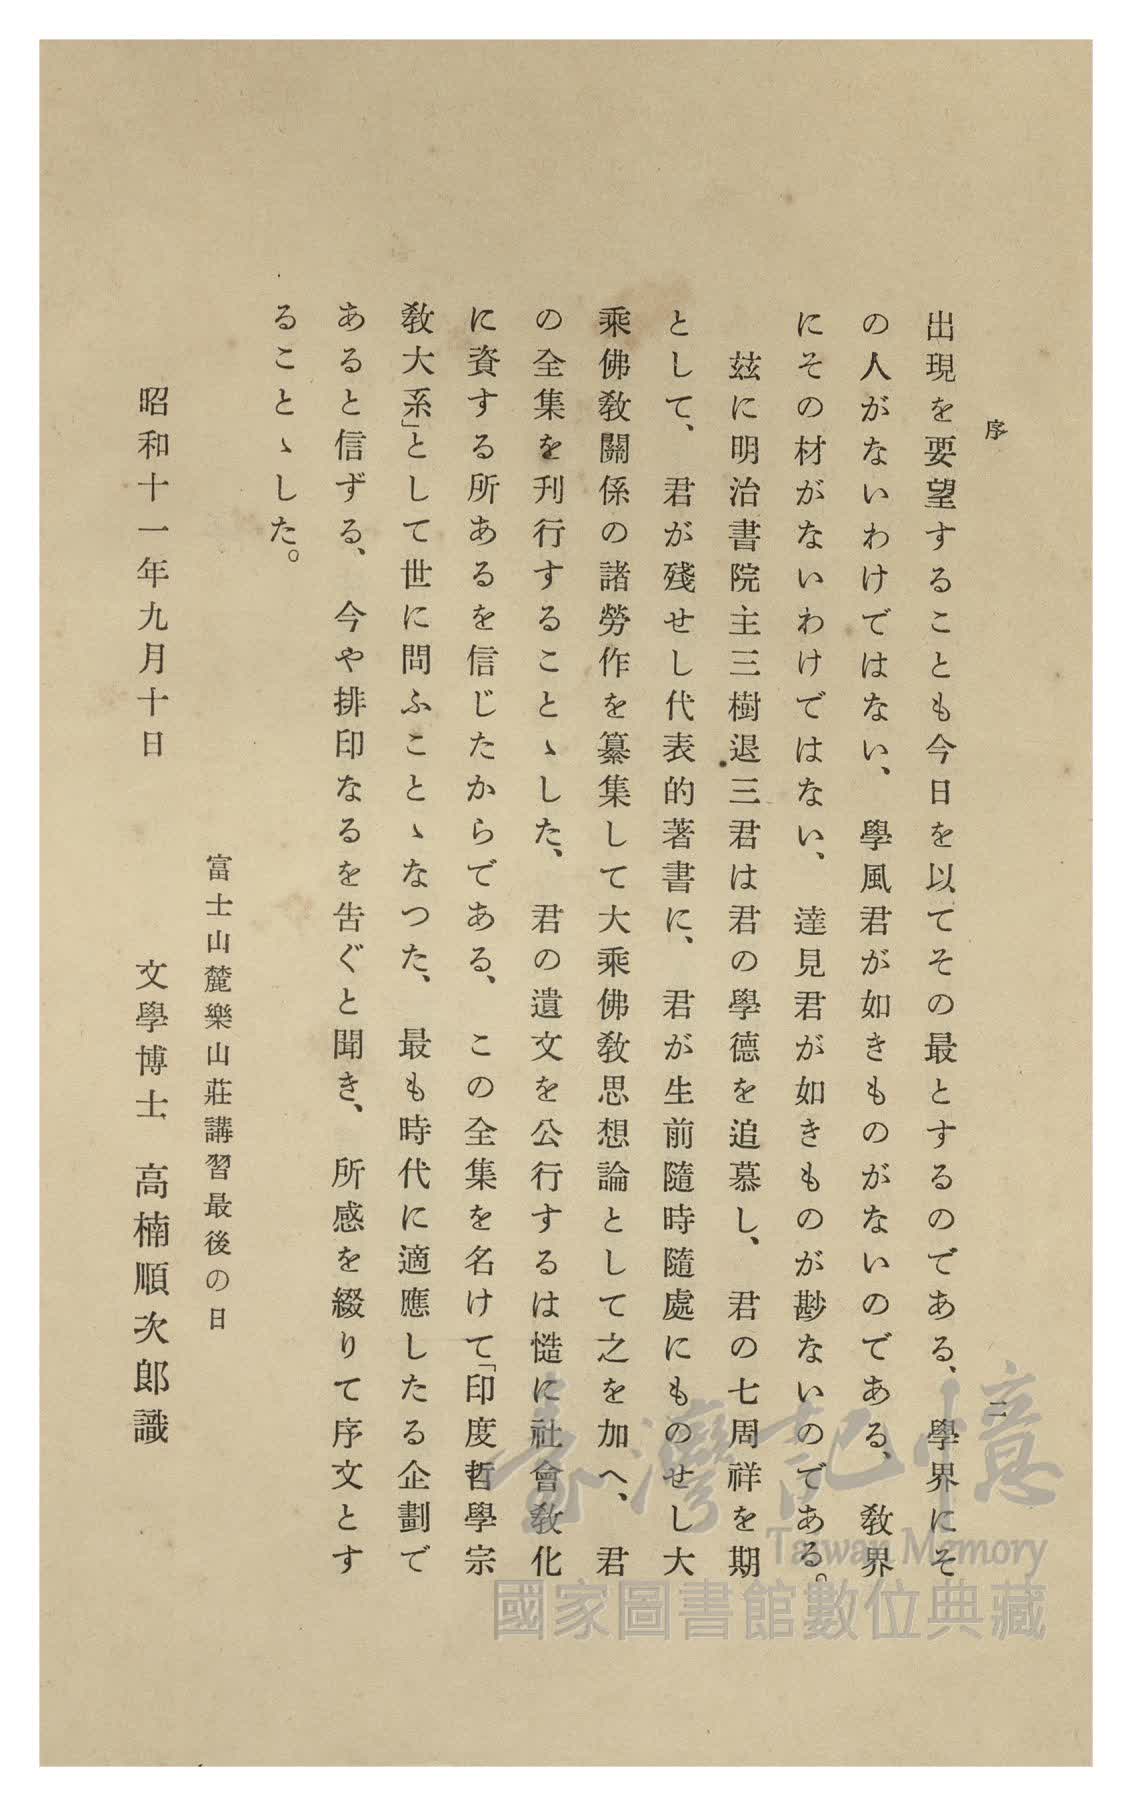 序
二
出現を要望することも今日を以てその最とするのである、學界にそ
の人がないわけではない、學風君が如きものがないのである、教界
にその材がないわけではない、達見君が如きものが尠ないのである。
玆に明治書院主三樹退三君は君の學德を追慕し、君の七周祥を期
として、君が殘せし代表的著書に、君が生前隨時隨處にものせし大
乘佛教關係の諸勞作を纂集して大乘佛教思想論として之を加へ、君
の全集を刊行することゝした、君の遺文を公行するは慥に社會敎化
に資する所あるを信じたからである、この全集を名けて「印度哲學宗
敎大系」として世に問ふことゝなつた、最も時代に適應したる企劃で
あると信ずる、今や排印なるを告ぐと聞き、所感を綴りて序文とす
ることゝした。
富士山麓樂山莊講習最後の日
昭和十一年九月十日
文學博士 高楠順次郞識
臺灣記憶
Taiwan Memory
國家圖書館數位典藏